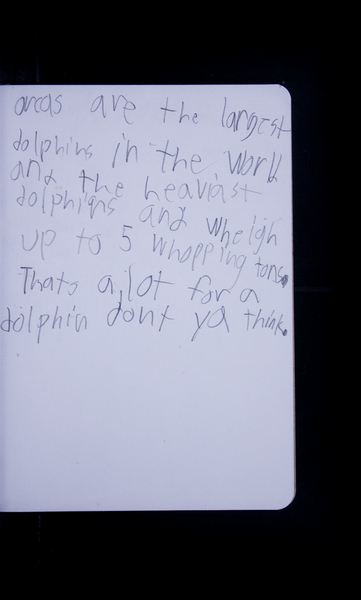 orcas are the largest
dolphins in the world
and the heaviast
dolphigns and wheligh
up to 5 whopping tons.
Thats a lot for a
dolphin dont ya think.